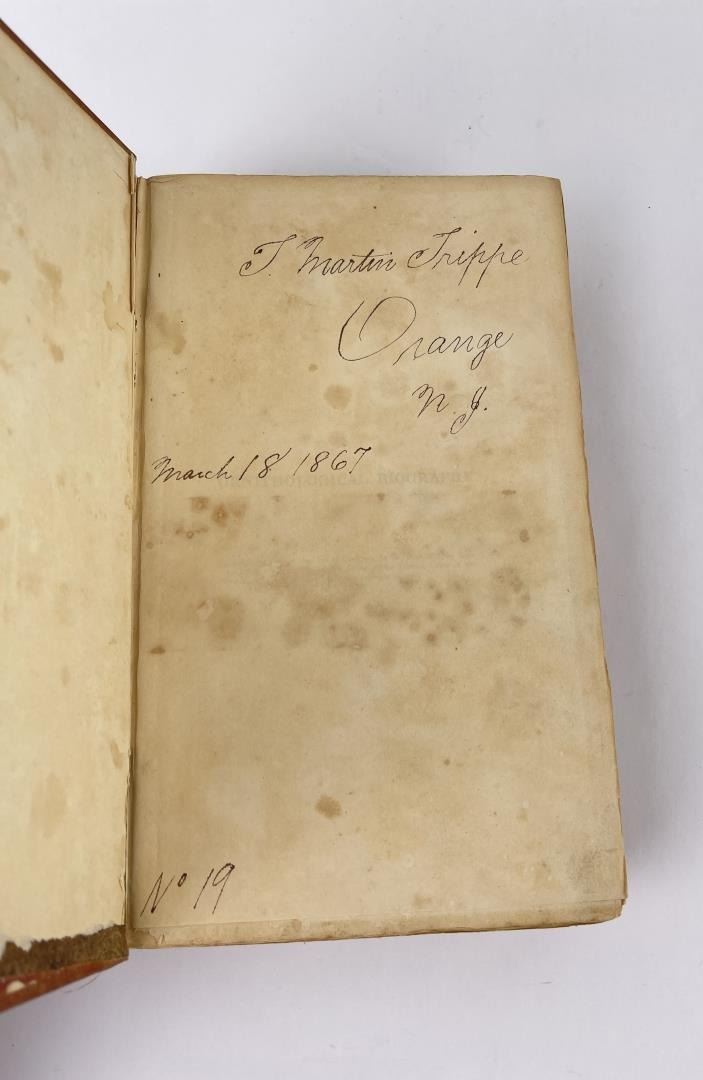 T. Martin Trippe
Orange
N. J.
March 18 1867
BIOGRAPHY
No 19